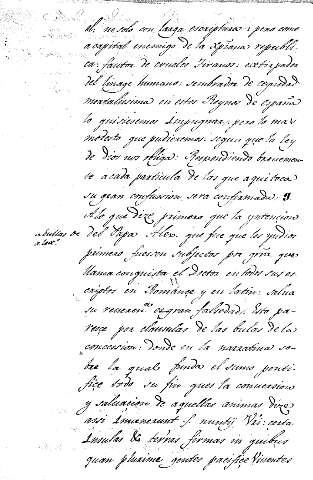 al: no solo con larga escriptura: pero como
a capital enemigo de la Xpiana republi
ca: fautor de crueles tiranos: extirpador
del linage humano: sembrador de ceguedad
mortalissima en estos Reynos de españa
lo quisieremos impugnar; pero lo mas
modesto que pudieremos: segun que la ley
de dios nos obliga: Respondiendo brevemen
te a cada particula de las que aqui toca
su gran confusion sera confirmada
A lo que dize primero que la yntencion
bullas de
alexo
del Papa Alex. que fue que los yndios
primero fuesen subjectos por grra que
llama conquista el doctor en todos sus es
criptos en Romançe y en latin: salua
su reverencia es gran falsedad. Esto pa
resce por clausulas de las bulas de la
concession: donde en la narratiua so
bre la qual funda el summo ponti
fice todo su fin ques la conversion
y saluacion de aquellas animas dize
assi Invenerunt s. nuntij Vri: certas
Insulas & terras firmas in quibus
quam plurime gentes pacifice viventes